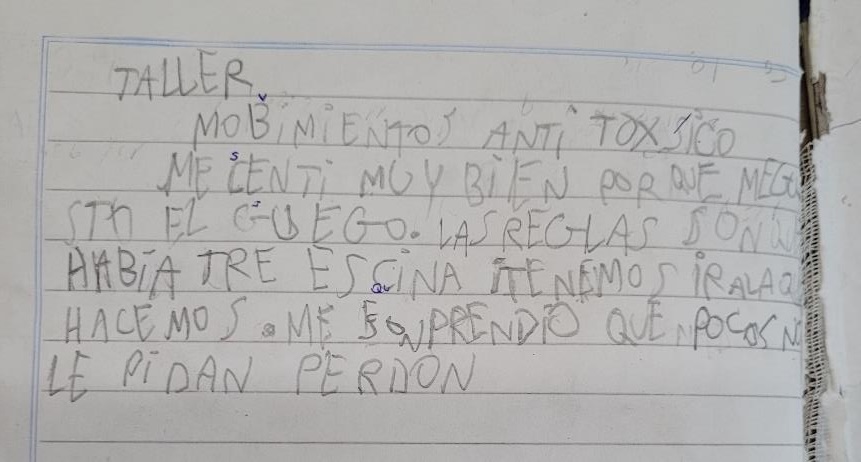 TALLER
MOBIMIENTOS ANTI TOXSICO
ME CENTI MUY BIEN PORQUE MEGU
STA EL GUEGO. LAS REGLAS SON
HABIA TRE ESCINA ITENEMOS IRALAQ
HACEMOS. ME SONPRENDIO QUE POCOS
LE PIDAN PERDON